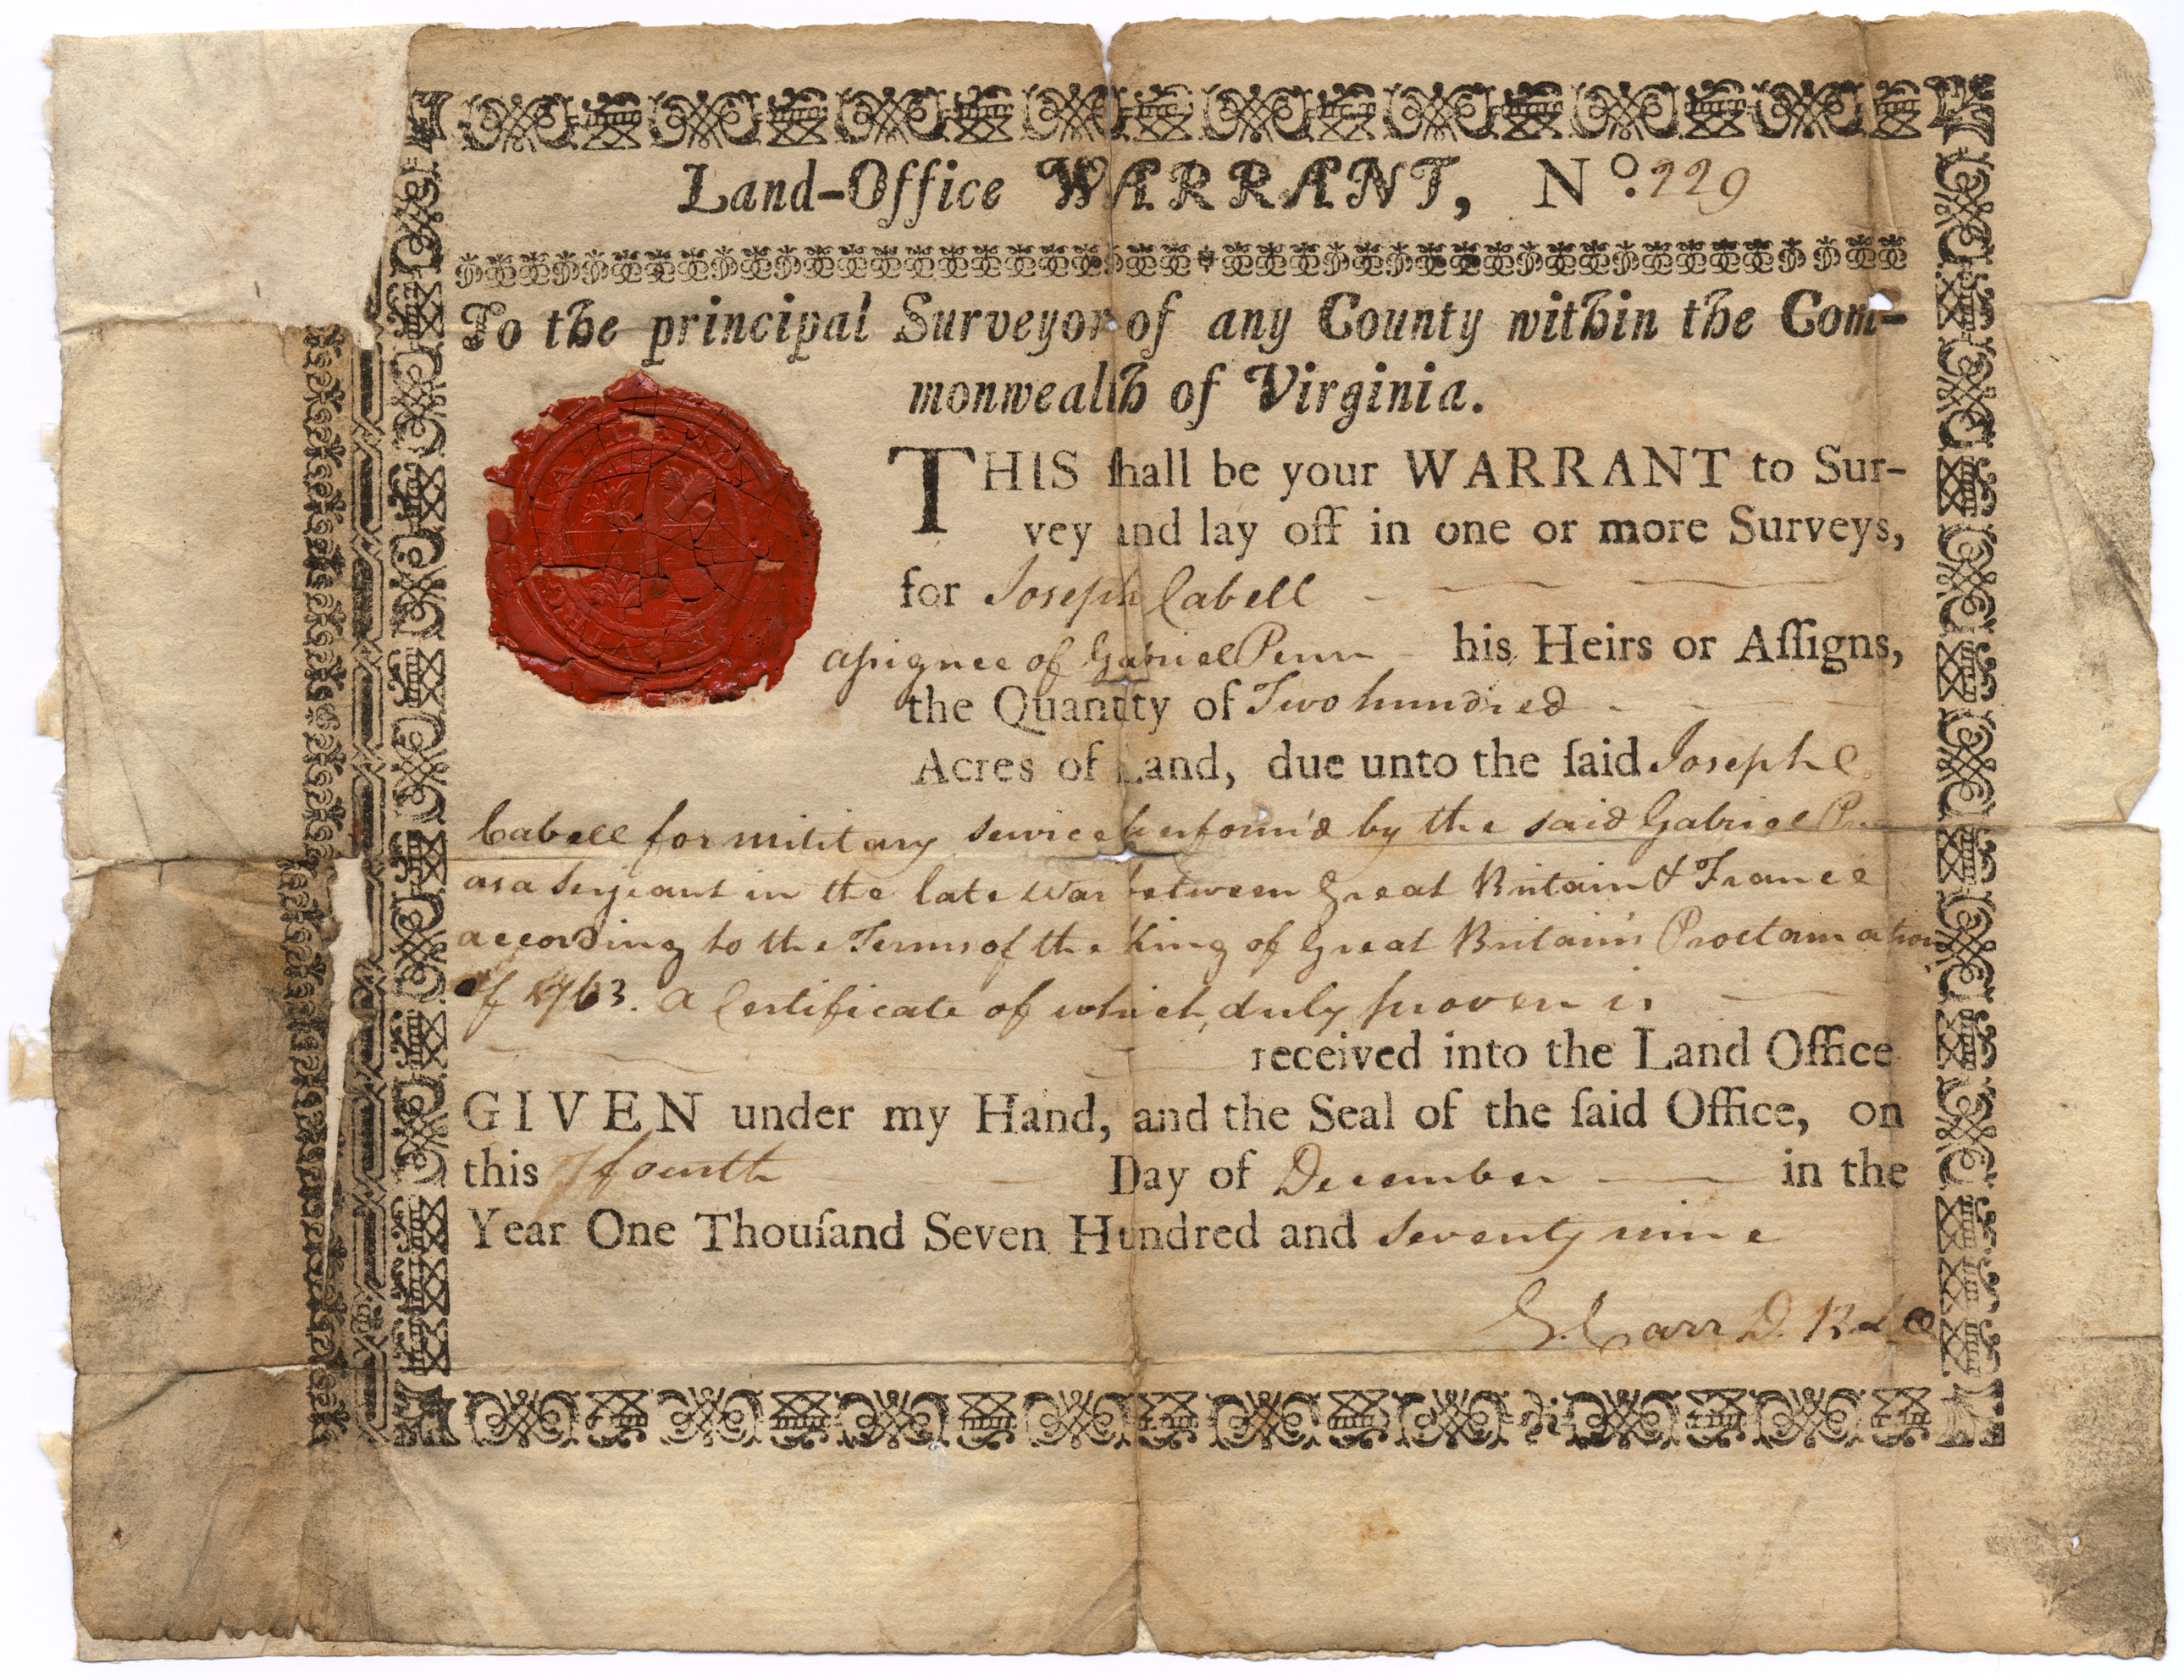 Land-Office WARRANT, No. 229
To the principal Surveyor of any County within the Com-
monwealth of Virginia.
THIS ſhall be your WARRANT to Sur-
vey and lay off in one or more Surveys,
for Joseph Cabell
aſsignee of Gabriel Penn his Heirs or Aſſigns,
the Quantity of Two hundred
Acres of Land, due unto the ſaid Joseph
Cabell for military service perform'd by the said Gabriel Penn
as a Serjeant in the late War between Great Britain & France
according to the Terms of the King of Great Britain's Proclamation
of 1763. a Certificate of which, duly proven is
received into the Land Office
GIVEN under my Hand, and the Seal of the ſaid Office, on
this fourth Day of December in the
Year One Thouſand Seven Hundred and seventy nine
S. Carr D. R L O